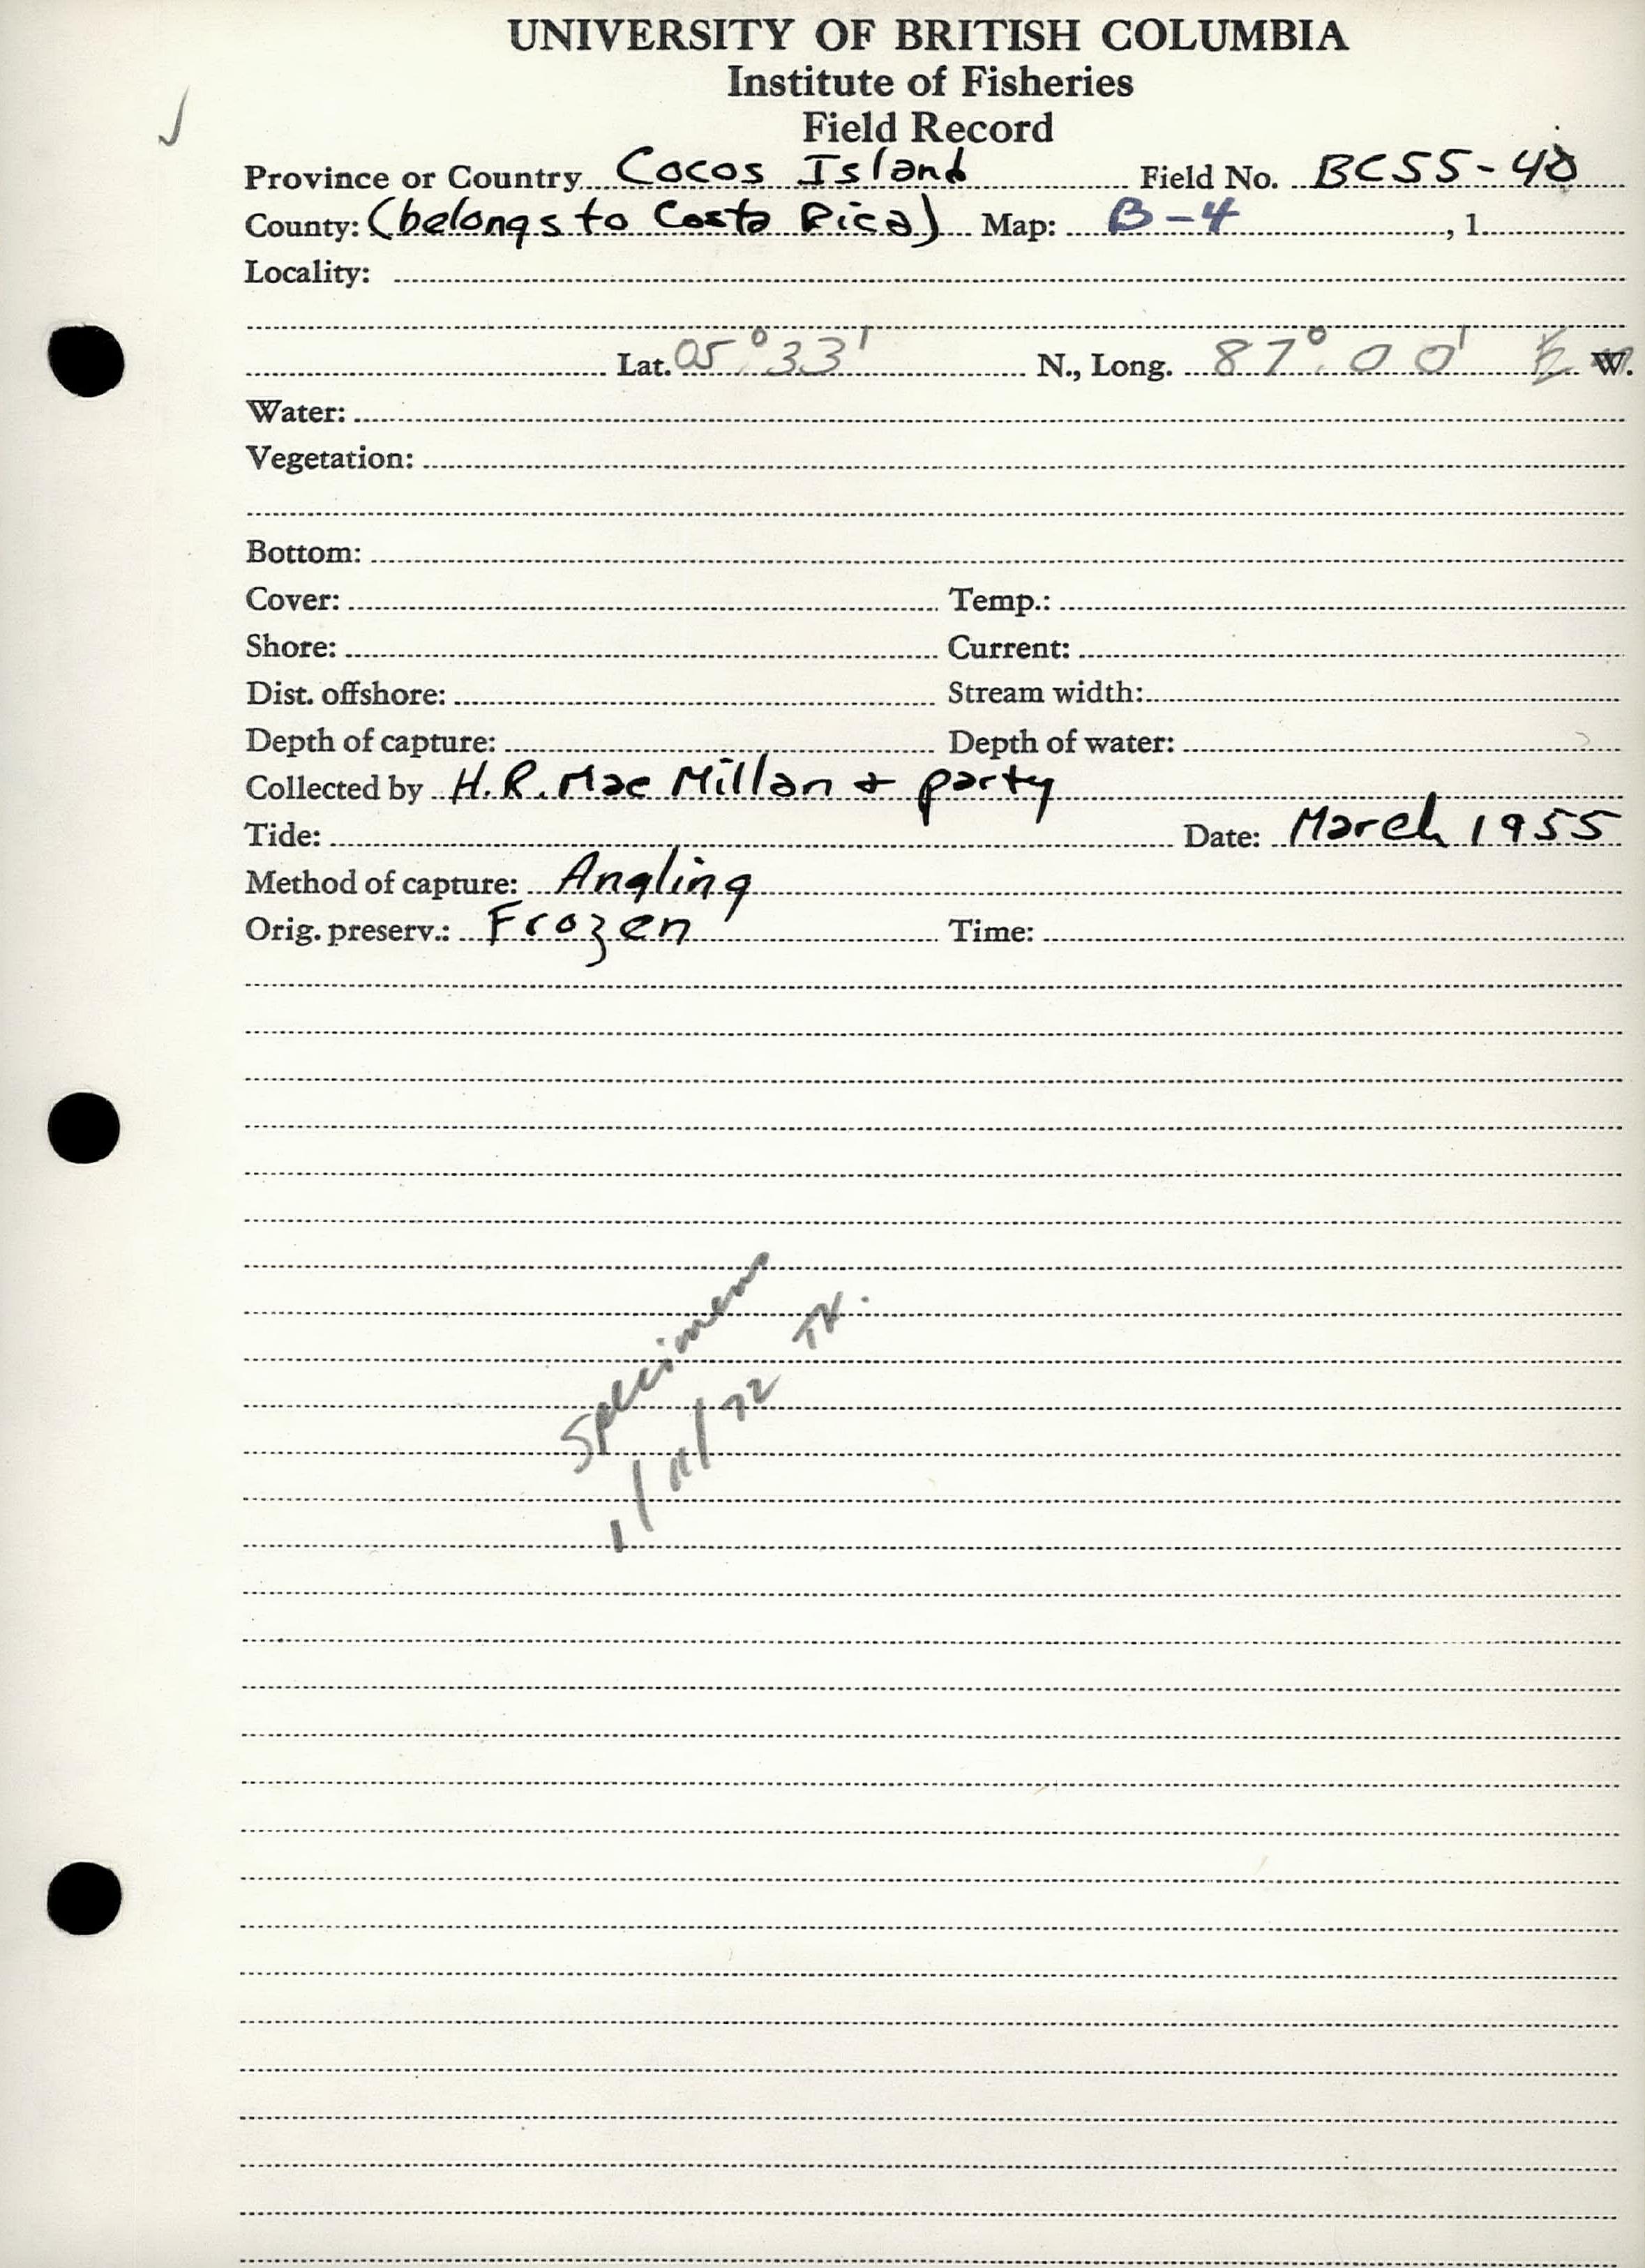 UNIVERSITY OF BRITISH COLUMBIA
Institute of Fisheries
Field Record
Province or Country Cocos Island Field No. BC55-40
County: (belongs to Costa Rica) Map: B-4, 1
Locality:
Lat. 05°33' N., Long. 87°00' W.
Water:
Vegetation:
Bottom:
Cover: Temp.:
Shore: Current:
Dist. offshore: Stream width:
Depth of capture: Depth of water:
Collected by H.R. Mac Millan + party
Tide: Date: March 1955
Method of capture: Angling
Orig. preserv.: Frozen Time:
Specimens
1/11/72